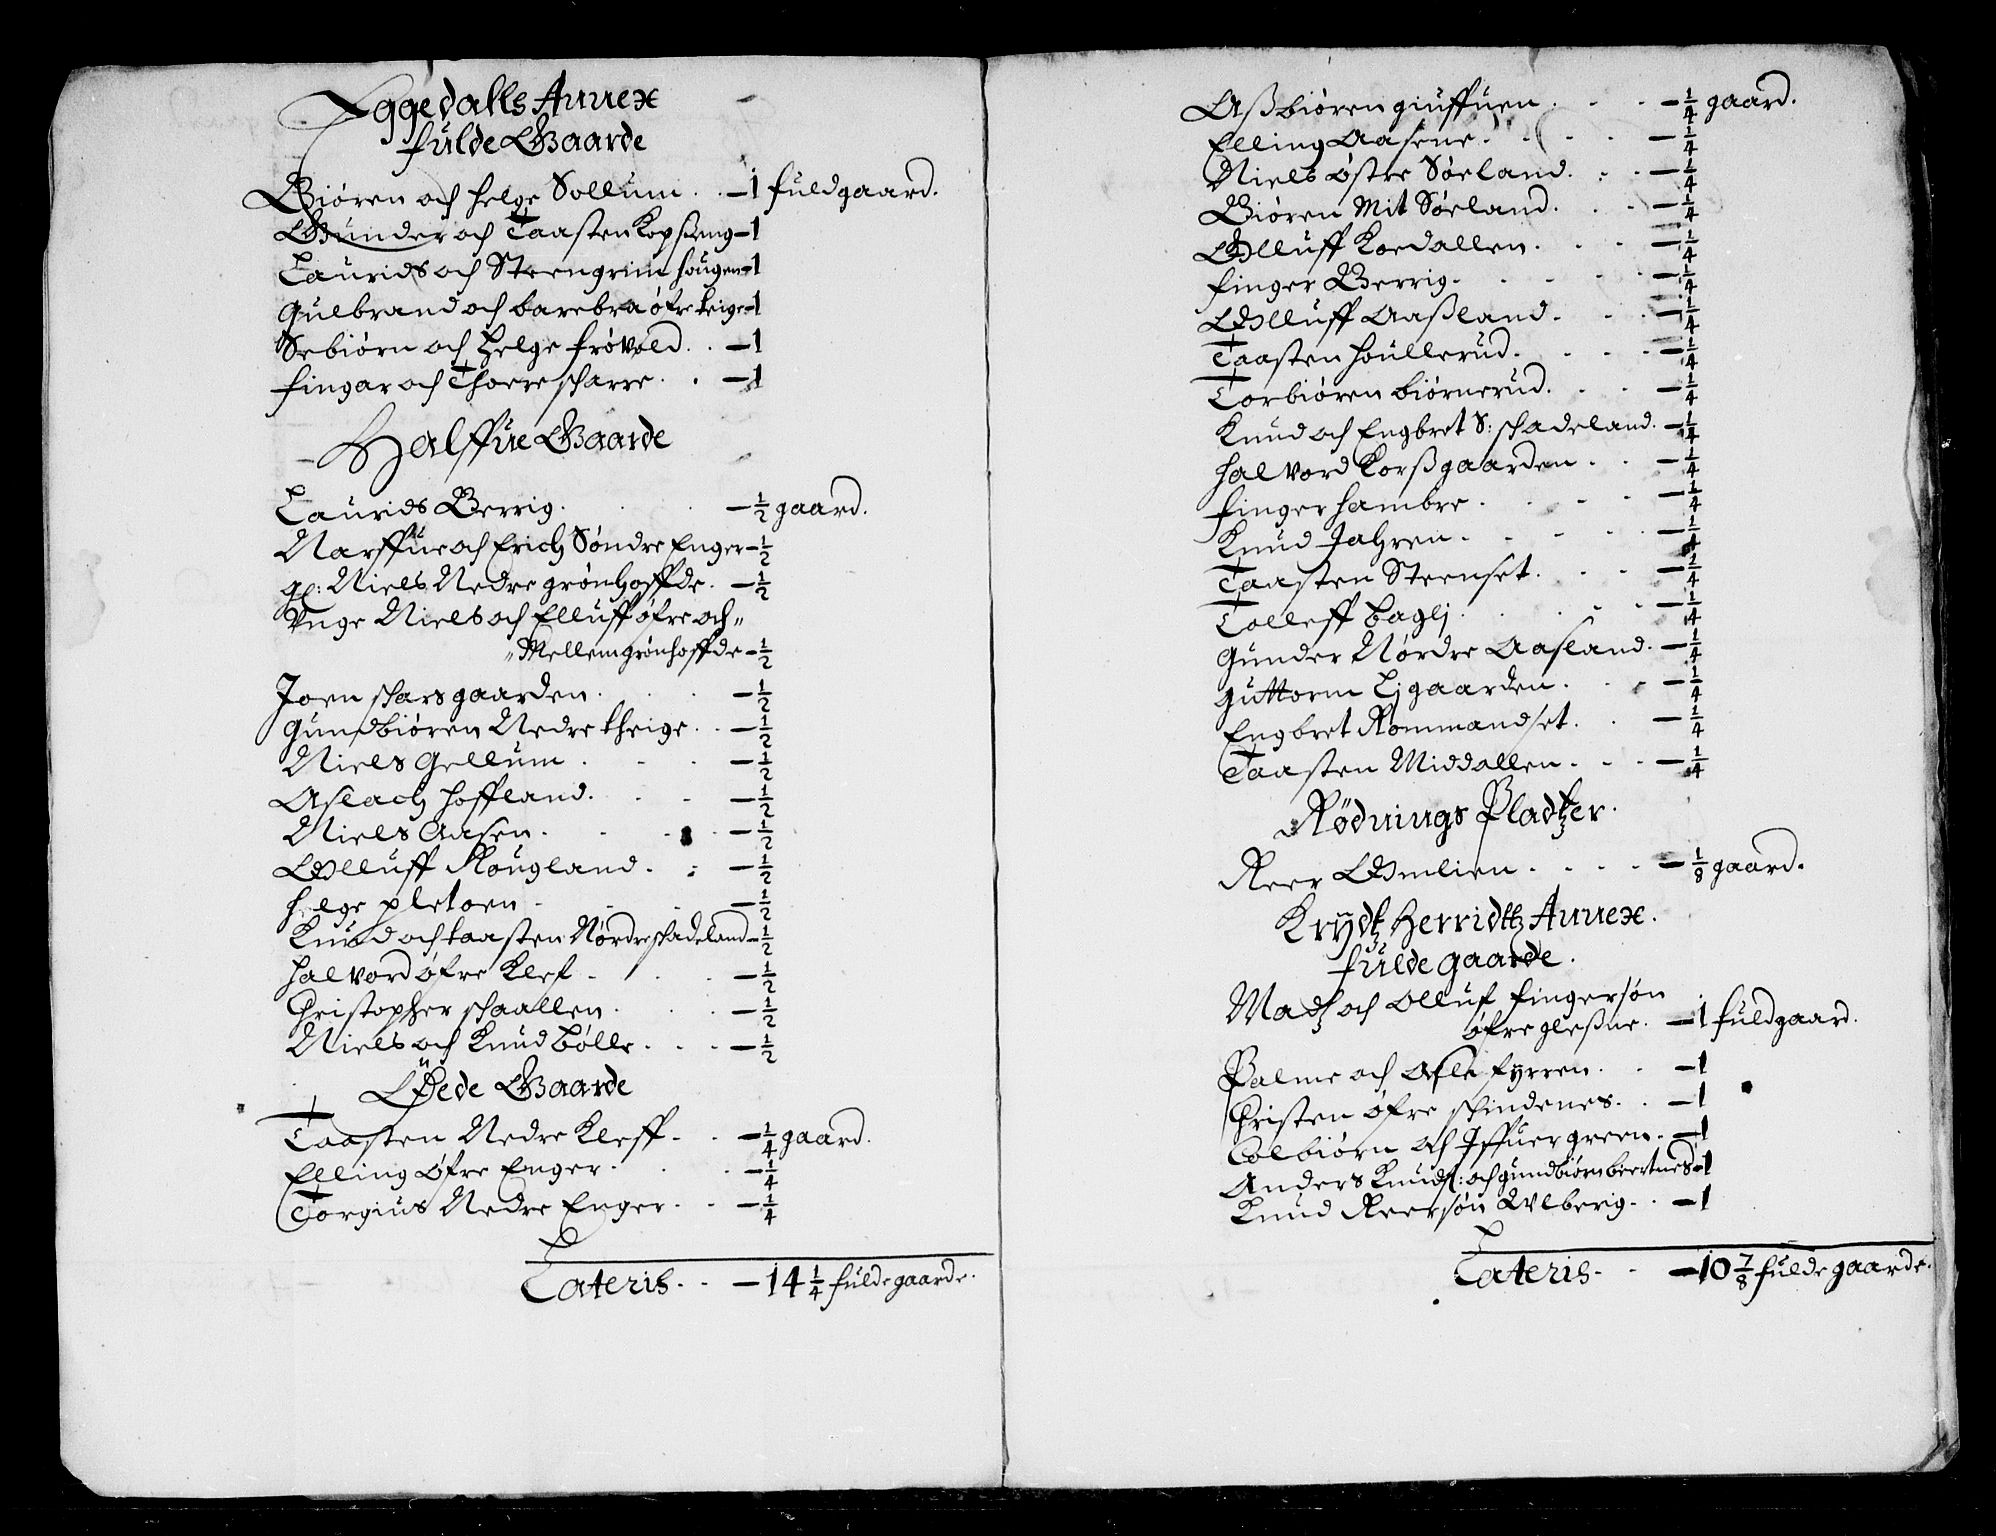 Eggedalls Annex
fulde Gaarde
Biøren och Helge Sollum . . — 1 fuldgaard.
Gunder och Taasten Kopßeng — 1
Laurids och Steengrim Hougen — 1
Gulbrand och barebra øfre teige — 1
Sebiørn och Helge frøvold . . — 1
fingar och Thore scharre . . — 1
Halffue Gaarde
Laurids Berrig . . — 1/2 gaard.
Narffue och Erich Søndre Enger — 1/2
gl: Niels Nedre grønhoffde . — 1/2
Vnge Niels och Elluff øfre och „
„ Mellem grønhoffde — 1/2
Joen scharsgaarden . . — 1/2
Gundbiøren Nedre theige . . — 1/2
Niels Gellum . . . — 1/2
Aslach Hoffland . . . — 1/2
Niels Aasen . . . — 1/2
Olluff Rougland . : — 1/2
Helge pletoen . . . — 1/2
Knud och taasten Nordre schadeland — 1/2
Halvord øfre Klef . . . — 1/2
Christopher schaallen . . . — 1/2
Niels och Knud Bølle . . . — 1/2
Øede Gaarde
Taasten Nedre Kleff . . — 1/4 gaard.
Elling øfre Enger . . . — 1/4
Torgius Nedre Enger . . — 1/4
Lateris . . — 14 1/4 fulde gaarde.
Aßbiøren giuffuen . . . — 1/4 gaard.
Elling Aasene . . . — 1/4
Niels østre Søeland . . . — 1/4
Biøren Mit Søeland . . . — 1/4
Olluff Koedallen . . . — 1/4
finger Berrig . . . — 1/4
Olluff Aaßland . . . — 1/4
Taasten Houllerud . . . — 1/4
Torbiøren biørnerud . . . — 1/4
Knud och Engbret S: schadeland . — 1/4
Halvord Korßgaarden . . — 1/4
finger Hambre . . . — 1/4
Knud Jahren . . . — 1/4
Taasten Steenset . . . — 1/4
Tolleff baglj . . . — 1/4
Gunder Nørdre Aasland . — 1/4
guttorm Ljgaarden . . . — 1/4
Engbret Rommandset . . — 1/4
Taasten Middallen . . . — 1/4
Rödnings Pladtzer .
Reer Omlien . . . . — 1/8 gaard .
Krydtz Herridtz Annex .
fulde gaarde .
Madtz och Olluf fingersøn
øfre gleßne . — 1 fuldgaard .
Palme och Asle fyrren . . — 1
Christen øfre schindenes . . — 1
Colbiørn och Iffuer green . — 1
Anders Knuds: och gundbiørn beertnes — 1
Knud Reersøn Vlberig . . — 1
Lateris . . — 10 7/8 fulde gaarde .